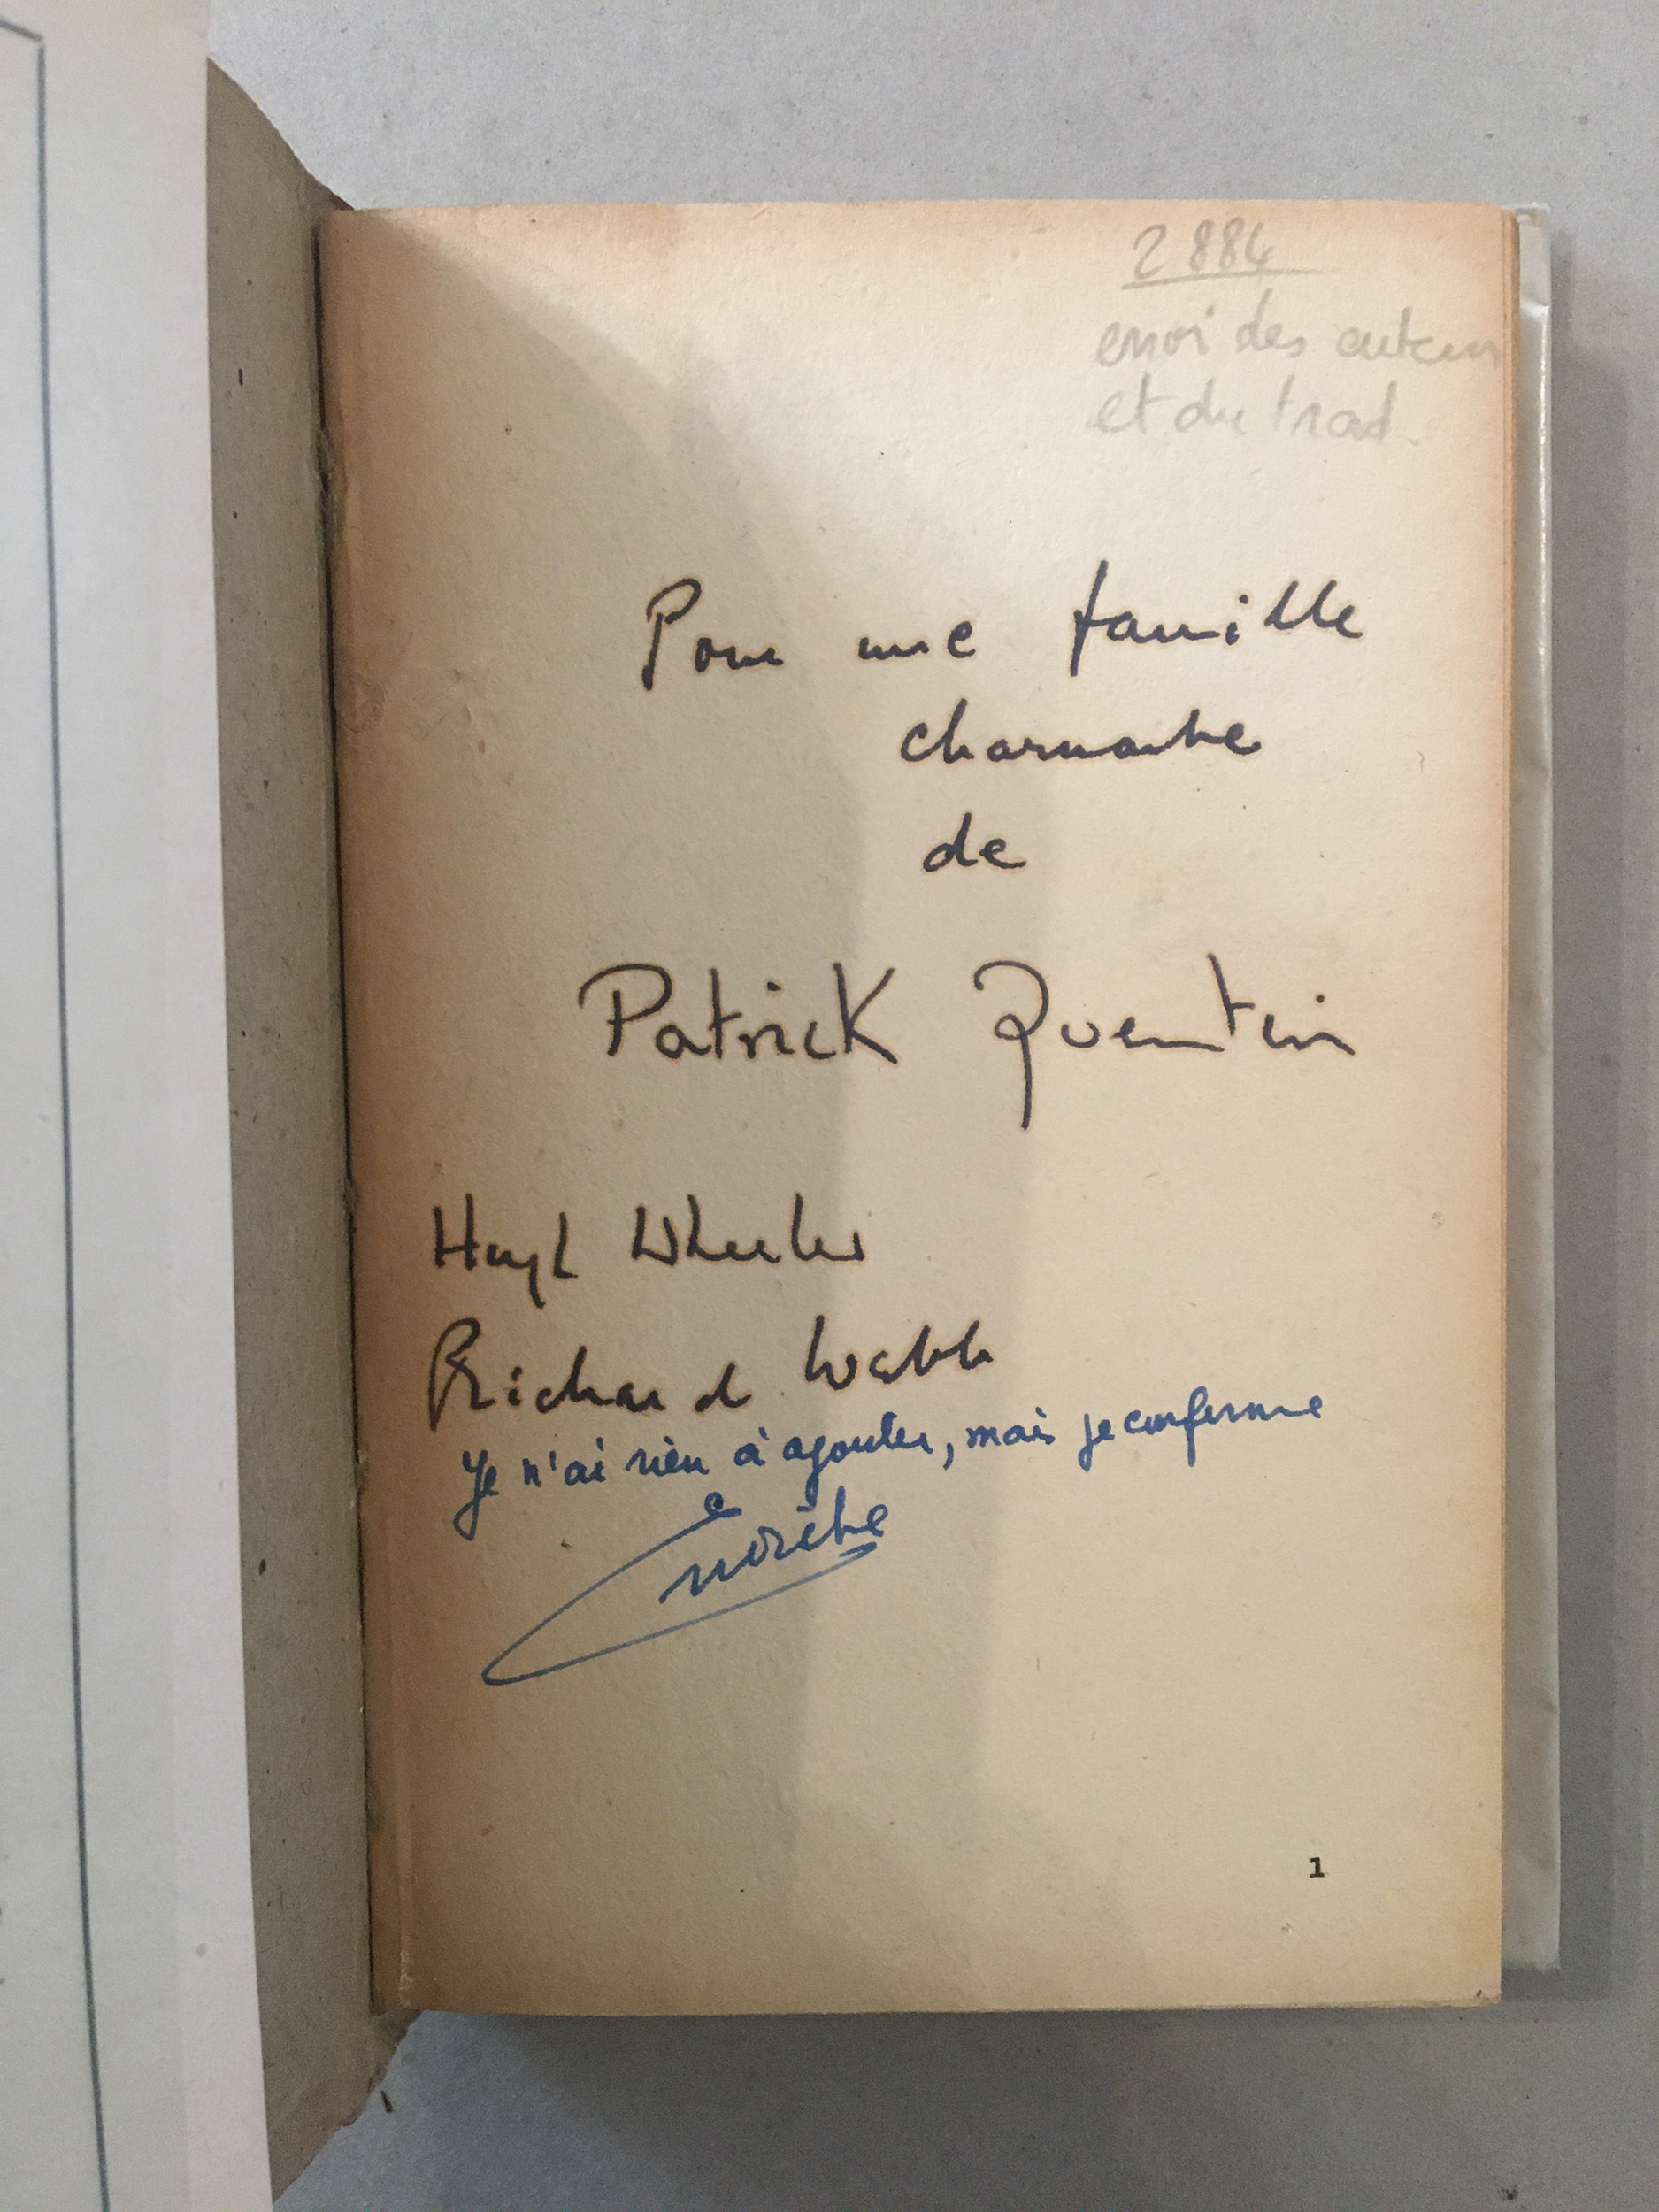 2884
envoi des auteurs
et du trad.
Pour une famille
charmante
de
Patrick Quentin
Hugh Wheeler
Richard Webb
Je n'ai rien à ajouter, mais je confirme
1